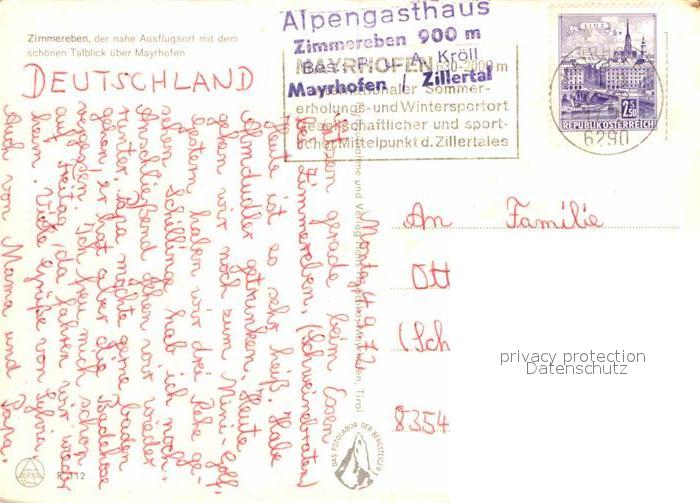 Zimmereben, der nahe Ausflugsort mit dem
schönen Talblick über Mayrhofen
DEUTSCHLAND
Alpengasthaus
Zimmereben 900 m
Bes. P. u. A. Kröll
Mayrhofen / Zillertal
MAYRHOFEN 630-2000 m
Sommer-
erholungs- und Wintersportort
gesellschaftlicher und sport-
licher Mittelpunkt d. Zillertales
LINZ
2.50
REPUBLIK ÖSTERREICH
6290
Montag, 4.9.72
gerade beim Essen
bei Zimmereben. (Schweinebraten)
Heute ist es sehr heiß. Habe
Almdudler getrunken. Heute
gehen wir noch zum Mini-Golf.
Gestern haben wir drei Rehe ge-
sehen. Schilling hab ich noch.
Anschließend gehen wir wieder
runter. Papa möchte gerne baden
gehen, er hat aber die Badehose
vergessen. Ich freu mich schon
auf Freitag, da fahren wir wieder
heim. Viele Grüße von Sylvia.
Auch von Mama und Papa.
An Familie
Ott
(Sch
8354
privacy protection
Datenschutz
DAS FOTOLABOR DER BERGSTEIGER
112